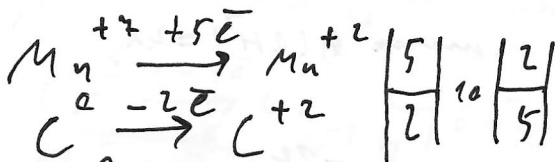 Mn⁺⁷ +5ē → Mn⁺² |5| 10 |2|
C⁰ −2ē → C⁺² |2| |5|